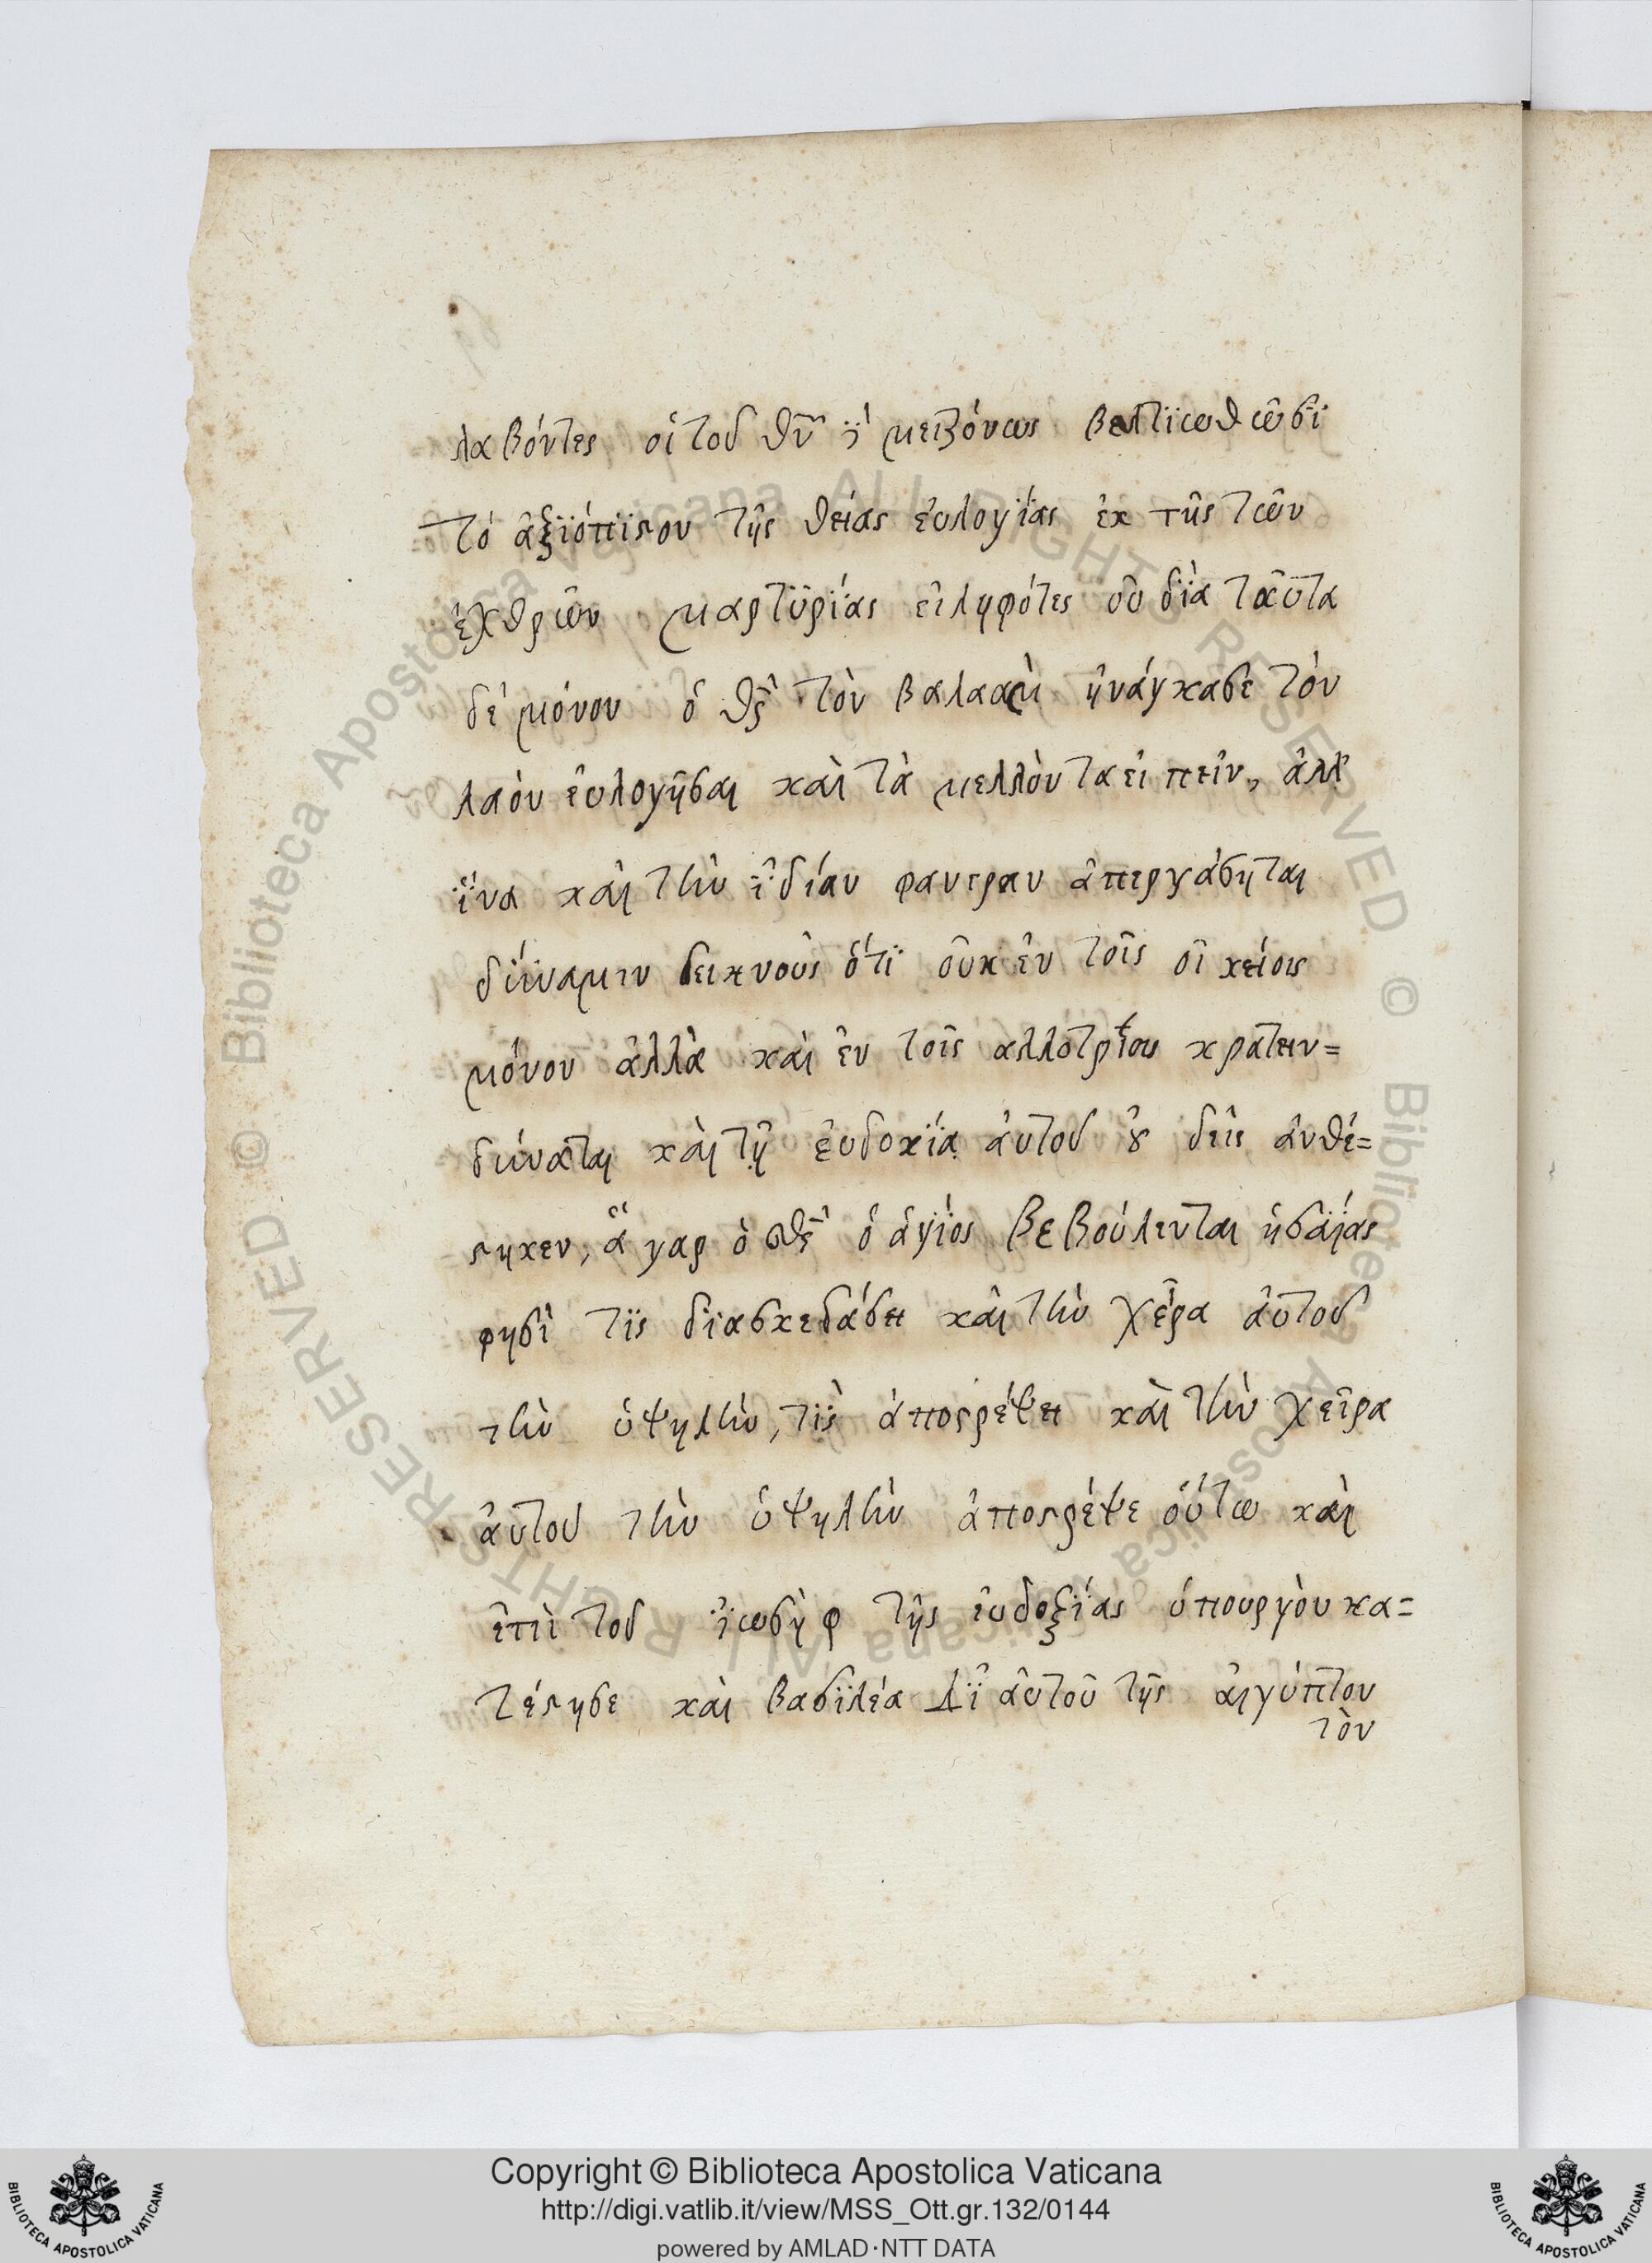 λαβόντες οἱ τοῦ θῦ ϗ μειζόνως βελτϊωθῶσϊ
τὸ ἀξϊόπϊστον τῆς θείας εὐλογΐας ἐκ τῆς τῶν
ἐχθρῶν μαρτϋρΐας εἰληφότες οὐ δϊὰ ταῦτα
δὲ μόνον ὁ θς̃ τὸν βαλαὰμ ἠνάγκασε τὸν
λαὸν εὐλογῆσαι καὶ τὰ μελλόντα εἰπεῖν, ἀλλ'
ἵνα καὶ τὴν ἰδίαν φανεραν ἀπεργάσηται
δύναμιν δεικνοὺς ὅτϊ οὐκ ἐν τοῖς οἰκείοις
μόνον ἀλλὰ καὶ ἐν τοῖς αλλοτρίοις κρατειν=
δύναται καὶ τῇ εὐδοκΐᾳ αὐτοῦ ȣ̓δεὶς ἀνθέ=
στηκεν, ἃ γαρ ὁ θς̃ ὁ ἁγίος βεβούλευται ἡσαΐας
φησὶ τϊς δϊασκεδάσει καὶ τὴν χέρα αὐτοῦ
τὴν ὑψηλὴν, τϊς ἀποστρέψει καὶ τὴν χεῖρα
αὐτοῦ τὴν ὑψηλὴν ἀποστρέψε οὕτω καὶ
ἐπὶ τοῦ ἰωσὴφ τῆς εὐδοξΐας ὑπουργὸν κα=
τέστησε καὶ βασϊλέα δϊ αὐτοῦ τῆς αἰγύπτου
τὸν
Copyright © Biblioteca Apostolica Vaticana
http://digi.vatlib.it/view/MSS_Ott.gr.132/0144
powered by AMLAD·NTT DATA